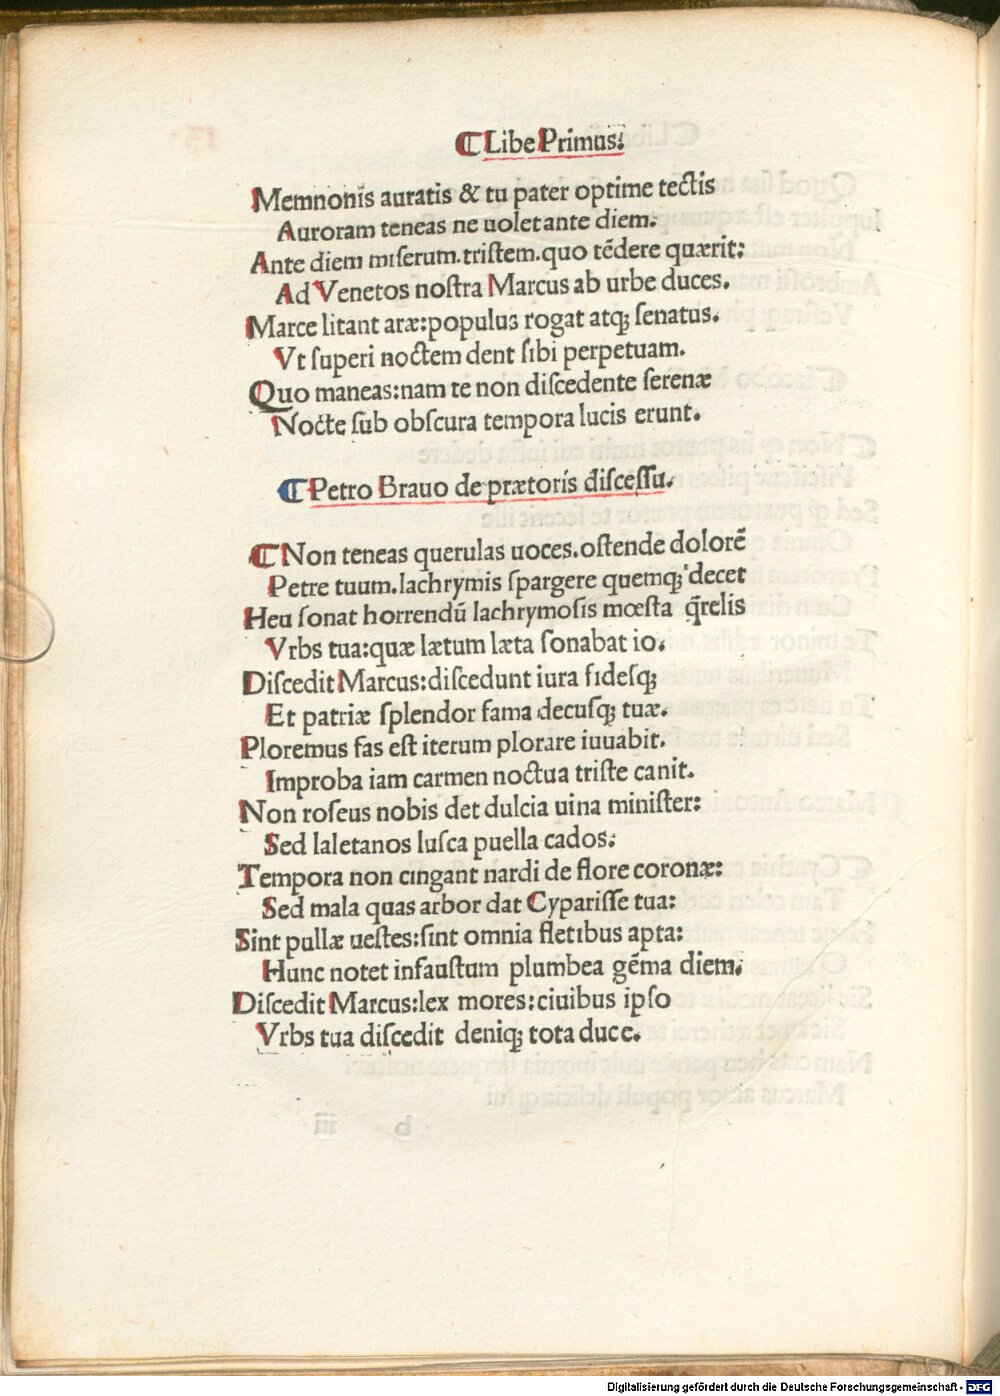 ¶ Libe Primus:
Memnonis auratis & tu pater optime tectis
Auroram teneas ne uolet ante diem.
Ante diem miserum.tristem.quo tēdere quærit:
Ad Venetos nostra Marcus ab urbe duces.
Marce litant aræ:populus rogat atqꝫ senatus.
Vt superi noctem dent sibi perpetuam.
Quo maneas:nam te non discedente serenæ
Nocte sub obscura tempora lucis erunt.
¶ Petro Brauo de prætoris discessu.
¶ Non teneas querulas uoces.ostende dolorē
Petre tuum.lachrymis spargere quemqꝫ decet
Heu sonat horrendū lachrymosis mœsta q̄relis
Vrbs tua:quæ lætum læta sonabat io.
Discedit Marcus:discedunt iura fidesqꝫ
Et patriæ splendor fama decusqꝫ tuæ.
Ploremus fas est iterum plorare iuuabit.
Improba iam carmen noctua triste canit.
Non roseus nobis det dulcia uina minister:
Sed laletanos lusca puella cados:
Tempora non cingant nardi de flore coronæ:
Sed mala quas arbor dat Cyparisse tua:
Sint pullæ uestes:sint omnia fletibus apta:
Hunc notet infaustum plumbea gēma diem.
Discedit Marcus:lex mores:ciuibus ipso
Vrbs tua discedit deniqꝫ tota duce.
Digitalisierung gefördert durch die Deutsche Forschungsgemeinschaft - DFG